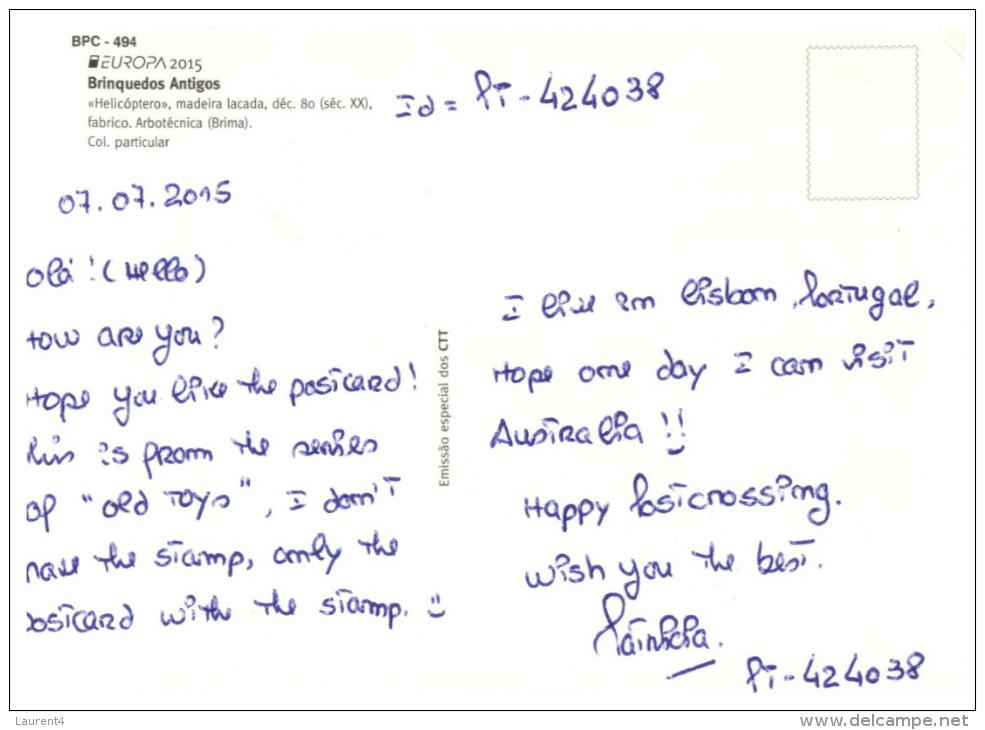 BPC - 494
EUROPA 2015
Brinquedos Antigos
«Helicóptero», madeira lacada, déc. 80 (séc. XX),
fabrico. Arbotécnica (Brima).
Col. particular
Id = PT-424038
07.07.2015
Olá! (Hello)
How are you?
Hope you like the postcard!
This is from the series
of "old toys", I don't
have the stamp, only the
postcard with the stamp.
Emissão especial dos CTT
I live in Lisbon, Portugal,
Hope one day I can visit
Australia!!
Happy Postcrossing.
Wish you the best.
PT-424038
Laurent4
www.delcampe.net